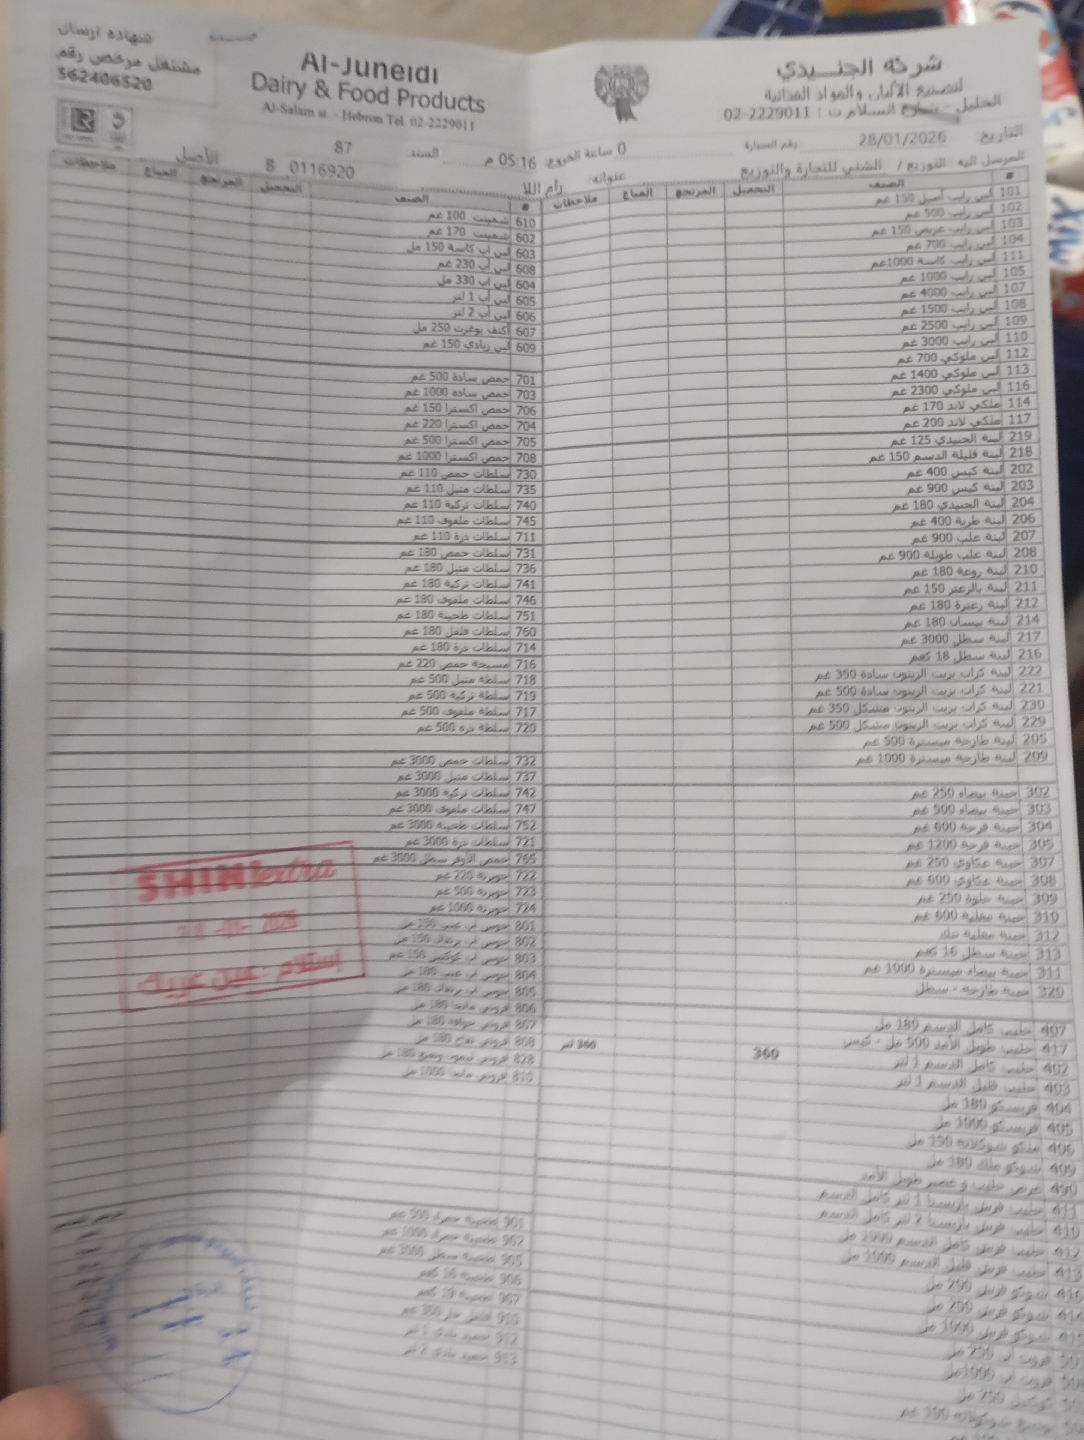 شهادة ارسال
مشتغل مرخص رقم
562406520
Al-Juneidi
Dairy & Food Products
Al-Salam st. - Hebron Tel. 02-2229011
شركة الجنيدي
لتصنيع الألبان والمواد الغذائية
الخليل - شارع السلام ت : 02-2229011
التاريخ: 28/01/2026 رقم السيارة 0 ساعة الخروج: 05:16 م السند 87 الأصل
المرسل اليه : التوزيع / الشني للتجارة والتوزيع عنوانه: رام اللا B 0116920
# الصنف التحميل المرتجع المباع ملاحظات
101 لبن رايب أصيل 150 غم
102 لبن رايب 500 غم
103 لبن رايب عريض 150 غم
104 لبن رايب 700 غم
111 لبن رايب كاسة 1000غم
105 لبن رايب 1000 غم
107 لبن رايب 4000 غم
108 لبن رايب 1500 غم
109 لبن رايب 2500 غم
110 لبن رايب 3000 غم
112 لبن ملوكي 700 غم
113 لبن ملوكي 1400 غم
116 لبن ملوكي 2300 غم
114 ملكي لاند 170 غم
117 ملكي لاند 200 غم
219 لبنة الجنيدي 125 غم
218 لبنة قليلة الدسم 150 غم
202 لبنة كيس 400 غم
203 لبنة كيس 900 غم
204 لبنة الجنيدي 180 غم
206 لبنة طرية 400 غم
207 لبنة علب 900 غم
208 لبنة علب طويلة 900 غم
210 لبنة روعة 180 غم
211 لبنة بالزعتر 150 غم
212 لبنة زعترة 180 غم
214 لبنة بيسان 180 غم
217 لبنة سطل 3000 غم
216 لبنة سطل 18 كغم
222 لبنة كرات بزيت الزيتون سادة 350 غم
221 لبنة كرات بزيت الزيتون سادة 500 غم
230 لبنة كرات بزيت الزيتون مشكل 350 غم
229 لبنة كرات بزيت الزيتون مشكل 500 غم
205 لبنة طازجة مبسترة 500 غم
209 لبنة طازجة مبسترة 1000 غم
302 جبنة بيضاء 250 غم
303 جبنة بيضاء 500 غم
304 جبنة فرحة 600 غم
305 جبنة فرحة 1200 غم
307 جبنة عكاوي 250 غم
308 جبنة عكاوي 600 غم
309 جبنة حلوة 250 غم
310 جبنة مغلية 600 غم
312 جبنة مغلية تنك
313 جبنة سطل 16 كغم
311 جبنة بيضاء مبسترة 1000 غم
320 جبنة طازجة - سطل
407 حليب كامل الدسم 180 مل
417 حليب طويل الأمد 500 مل - كيس 360 360 لتر
402 حليب كامل الدسم 1 لتر
403 حليب قليل الدسم 1 لتر
404 فريسكو 180 مل
405 فريسكو 1000 مل
406 ملكو شوكلاته 150 مل
409 شوكو ملك 180 مل
490 عرض حليب و عصير طويل الأمد
411 حليب فريش باريستا 1 لتر كامل الدسم
410 حليب فريش باريستا 2 لتر كامل الدسم
412 حليب فريش كامل الدسم 1000 مل
413 حليب فريش قليل الدسم 1000 مل
شوكو فريش 200 مل
شوكو فريش 250 مل
شوكو فريش 1000 مل
فروت اب 250 مل
فروت اب 1000مل
كوكتيل 250 مل
# الصنف التحميل المرتجع المباع ملاحظات
610 شمينت 100 غم
602 شمينت 170 غم
603 لبن اب كاسة 150 مل
608 لبن أب 230 غم
604 لبن أب 330 مل
605 لبن أب 1 لتر
606 لبن أب 2 لتر
607 أكتف يوغرت 250 مل
609 لبن زبادي 150 غم
701 حمص سادة 500 غم
703 حمص ساده 1000 غم
706 حمص اكسترا 150 غم
704 حمص اكسترا 220 غم
705 حمص اكسترا 500 غم
708 حمص اكسترا 1000 غم
730 سلطات حمص 110 غم
735 سلطات متبل 110 غم
740 سلطات تركية 110 غم
745 سلطات ملفوف 110 غم
711 سلطات ذرة 110 غم
731 سلطات حمص 180 غم
736 سلطات متبل 180 غم
741 سلطات تركية 180 غم
746 سلطات ملفوف 180 غم
751 سلطات طحينة 180 غم
760 سلطات فلفل 180 غم
714 سلطات ذرة 180 غم
716 مسبحة حمص 220 غم
718 سلطة متبل 500 غم
719 سلطة تركية 500 غم
717 سلطة ملفوف 500 غم
720 سلطة ذرة 500 غم
732 سلطات حمص 3000 غم
737 سلطات متبل 3000 غم
742 سلطات تركية 3000 غم
747 سلطات ملفوف 3000 غم
752 سلطات طحينة 3000 غم
721 سلطات ذرة 3000 غم
765 حمص الأوفر سطل 3000 غم
722 جويرية 220 غم
723 جويرية 500 غم
724 جويرية 1000 غم
801 جوسي اب عنب 150 مل
802 جوسي اب برتقال 150 مل
803 جوسي اب كوكتيل 150 مل
804 جوسي اب عنب 180 مل
805 جوسي اب برتقال 180 مل
806 فروتي مانجا 180 مل
807 فروتي جوافة 180 مل
808 فروتي تفاح 180 مل
828 فروتي ليمون ونعنع 180 مل
810 فروتي مانجا 1000 مل
901 طحينة حمراء 500 غم
902 طحينة حمراء 1000 غم
905 طحينة سطل 3000 غم
906 طحينة 16 كغم
907 طحينة 19 كغم
SHINI extra
28 -01- 2026
إستلام - عين عريك